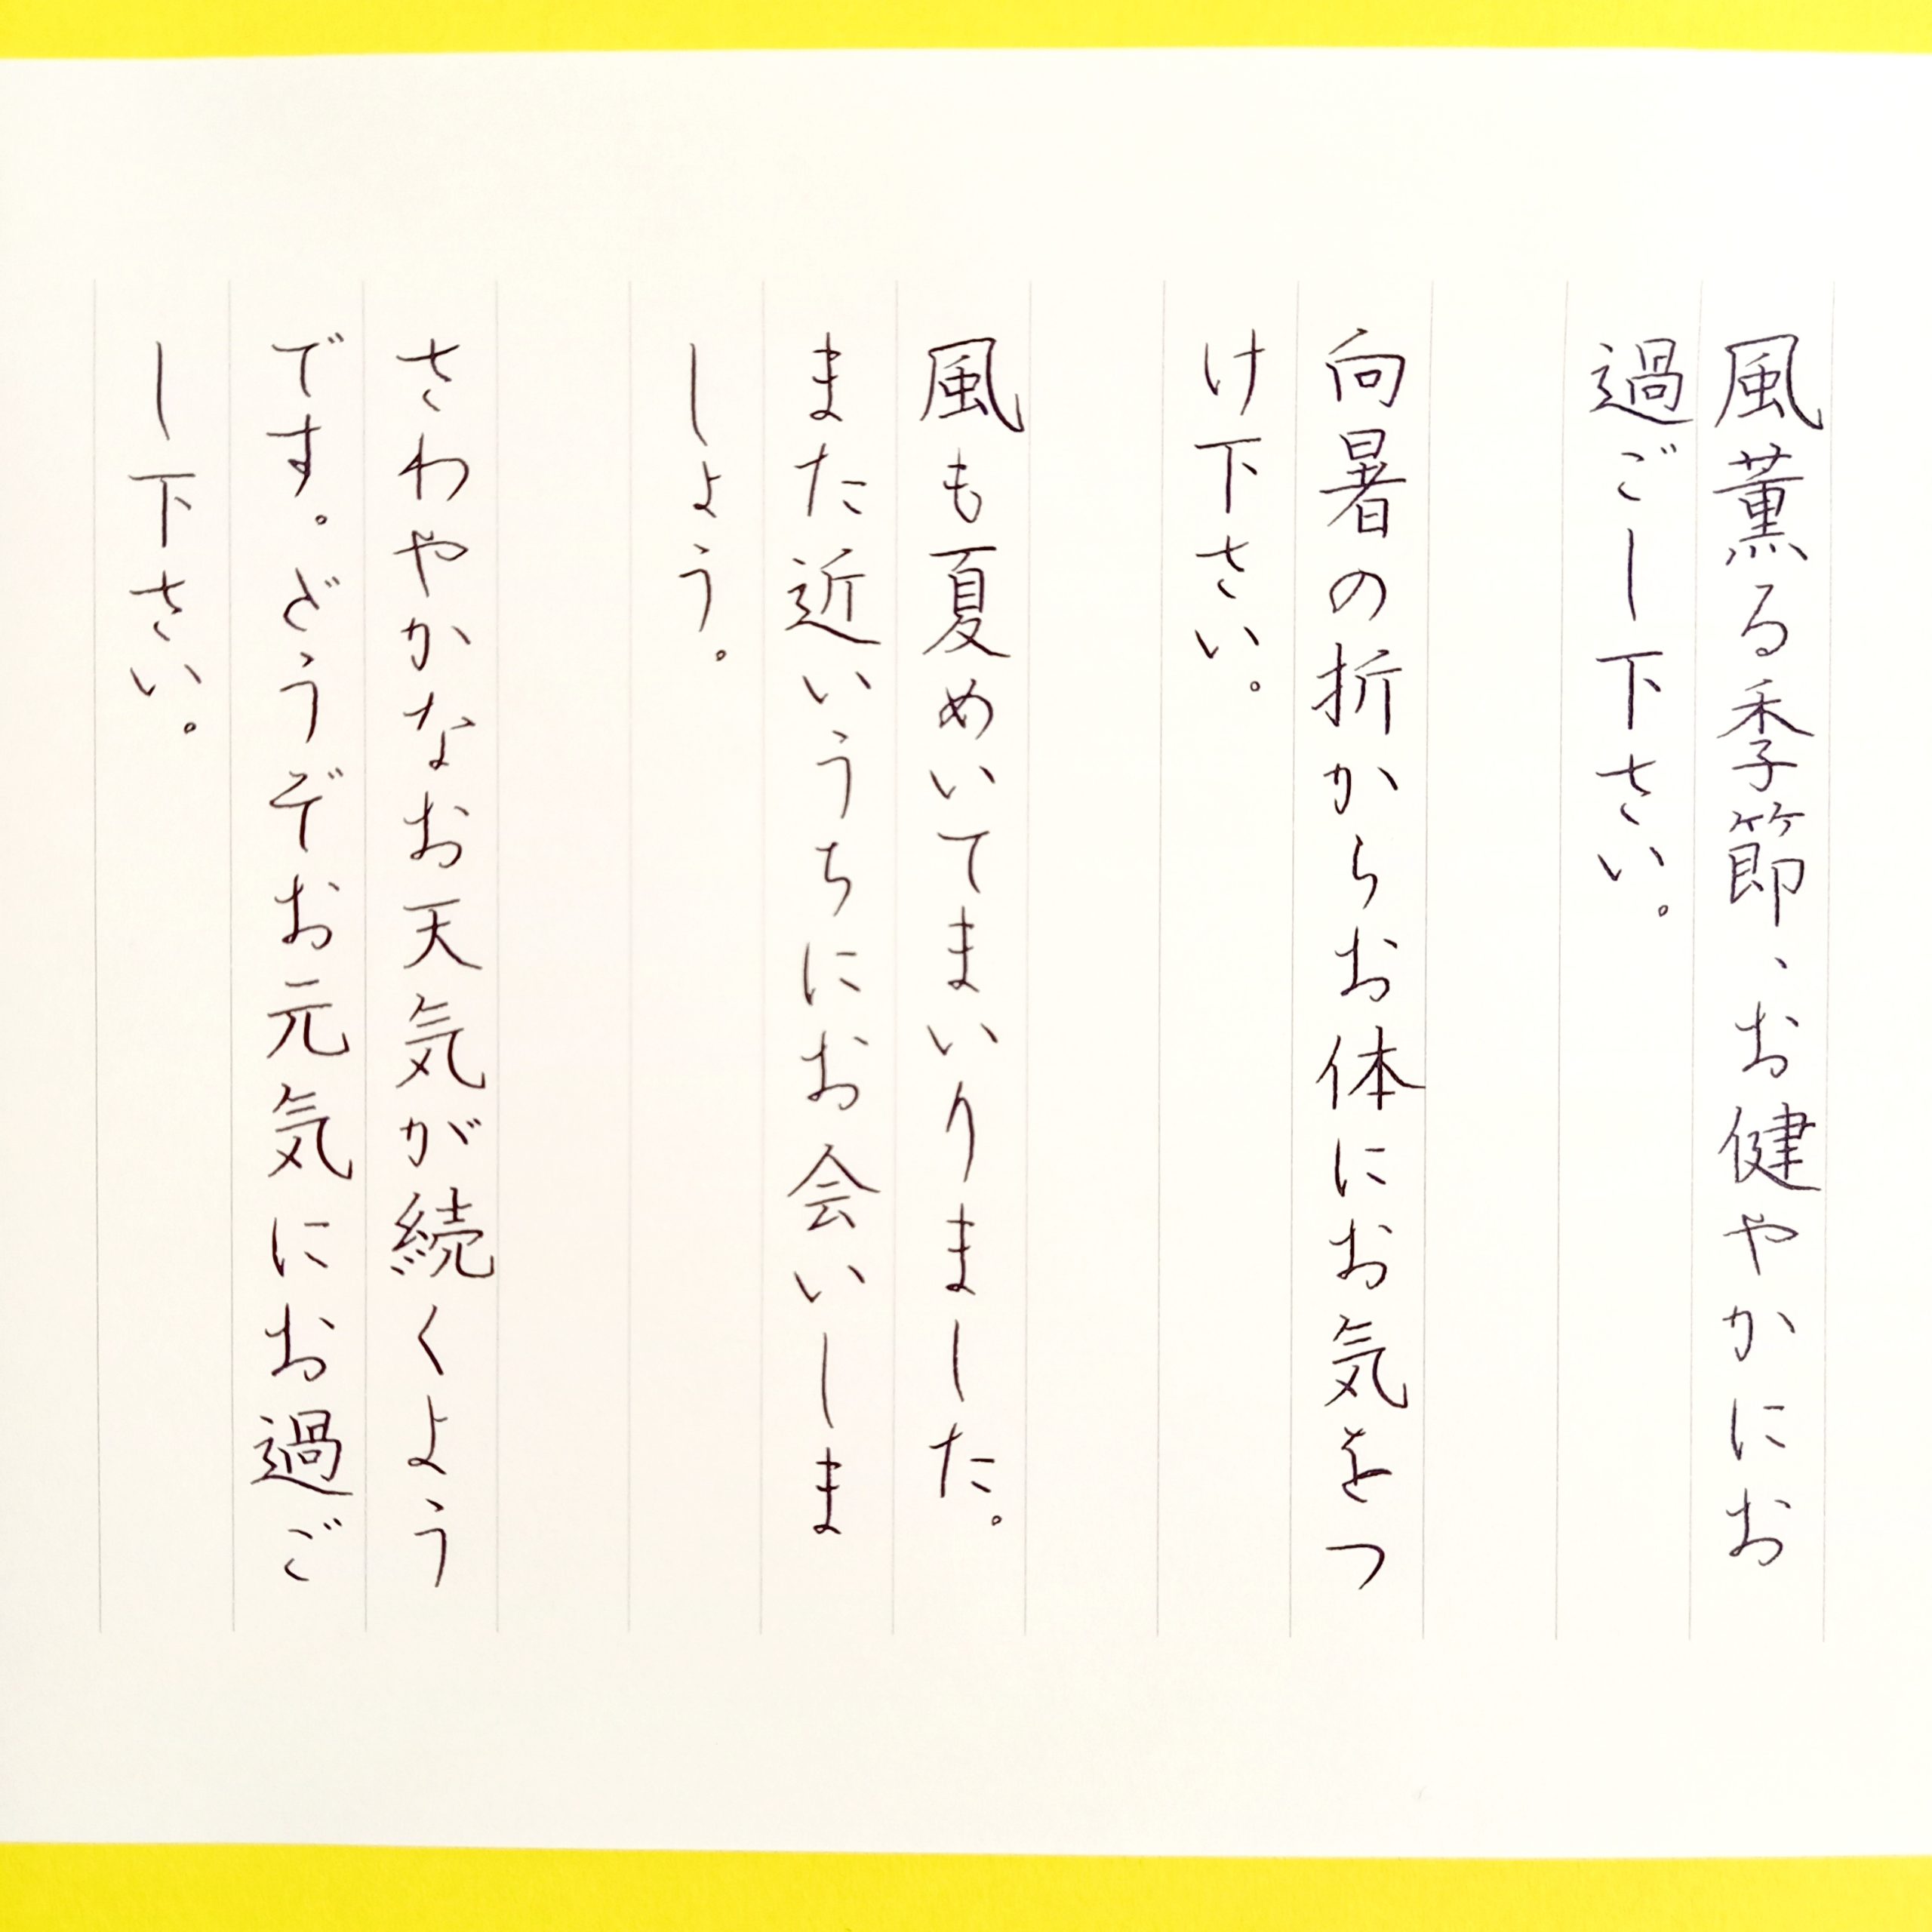 風薫る季節、お健やかにお
過ごし下さい。
向暑の折からお体にお気をつ
け下さい。
風も夏めいてまいりました。
また近いうちにお会いしま
しょう。
さわやかなお天気が続くよう
です。どうぞお元気にお過ご
し下さい。